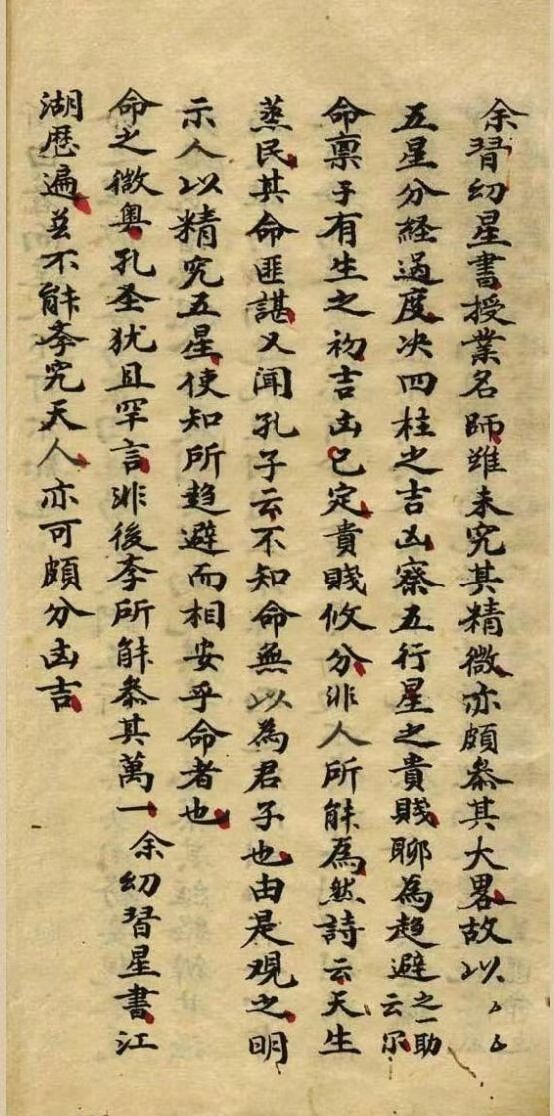 余習幼星書授業名師雖未究其精微亦頗叅其大畧故以〻〻
五星分経過度决四柱之吉凶察五行星之貴賤聊為趋避之一助云尔
命禀于有生之初吉凶已定貴賤攸分非人所能為然詩云天生
蒸民其命匪諶又聞孔子云不知命無以為君子也由是观之明
示人以精究五星使知所趋避而相安乎命者也
命之微奥孔圣犹且罕言非後斈所能叅其萬一 余幼習星書江
湖歷遍並不能斈究天人亦可頗分凶吉